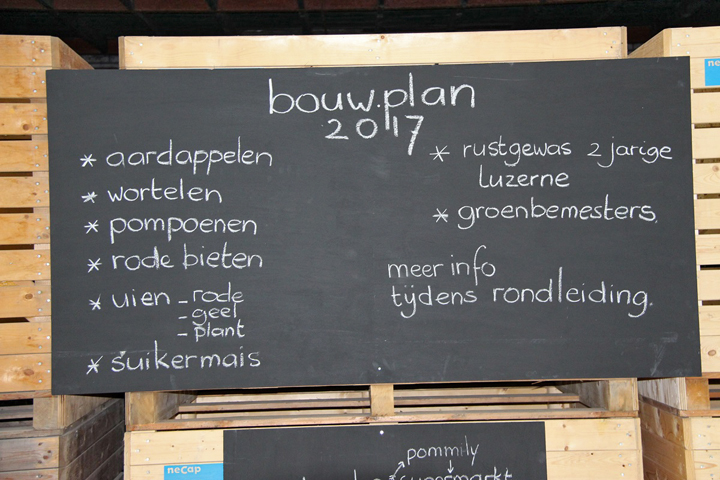 bouw.plan
2017
* aardappelen
* wortelen
* pompoenen
* rode bieten
* uien - rode
- geel
- plant
* suikermais
* rustgewas 2 jarige
luzerne
* groenbemesters.
meer info
tijdens rondleiding.
pommily
necap